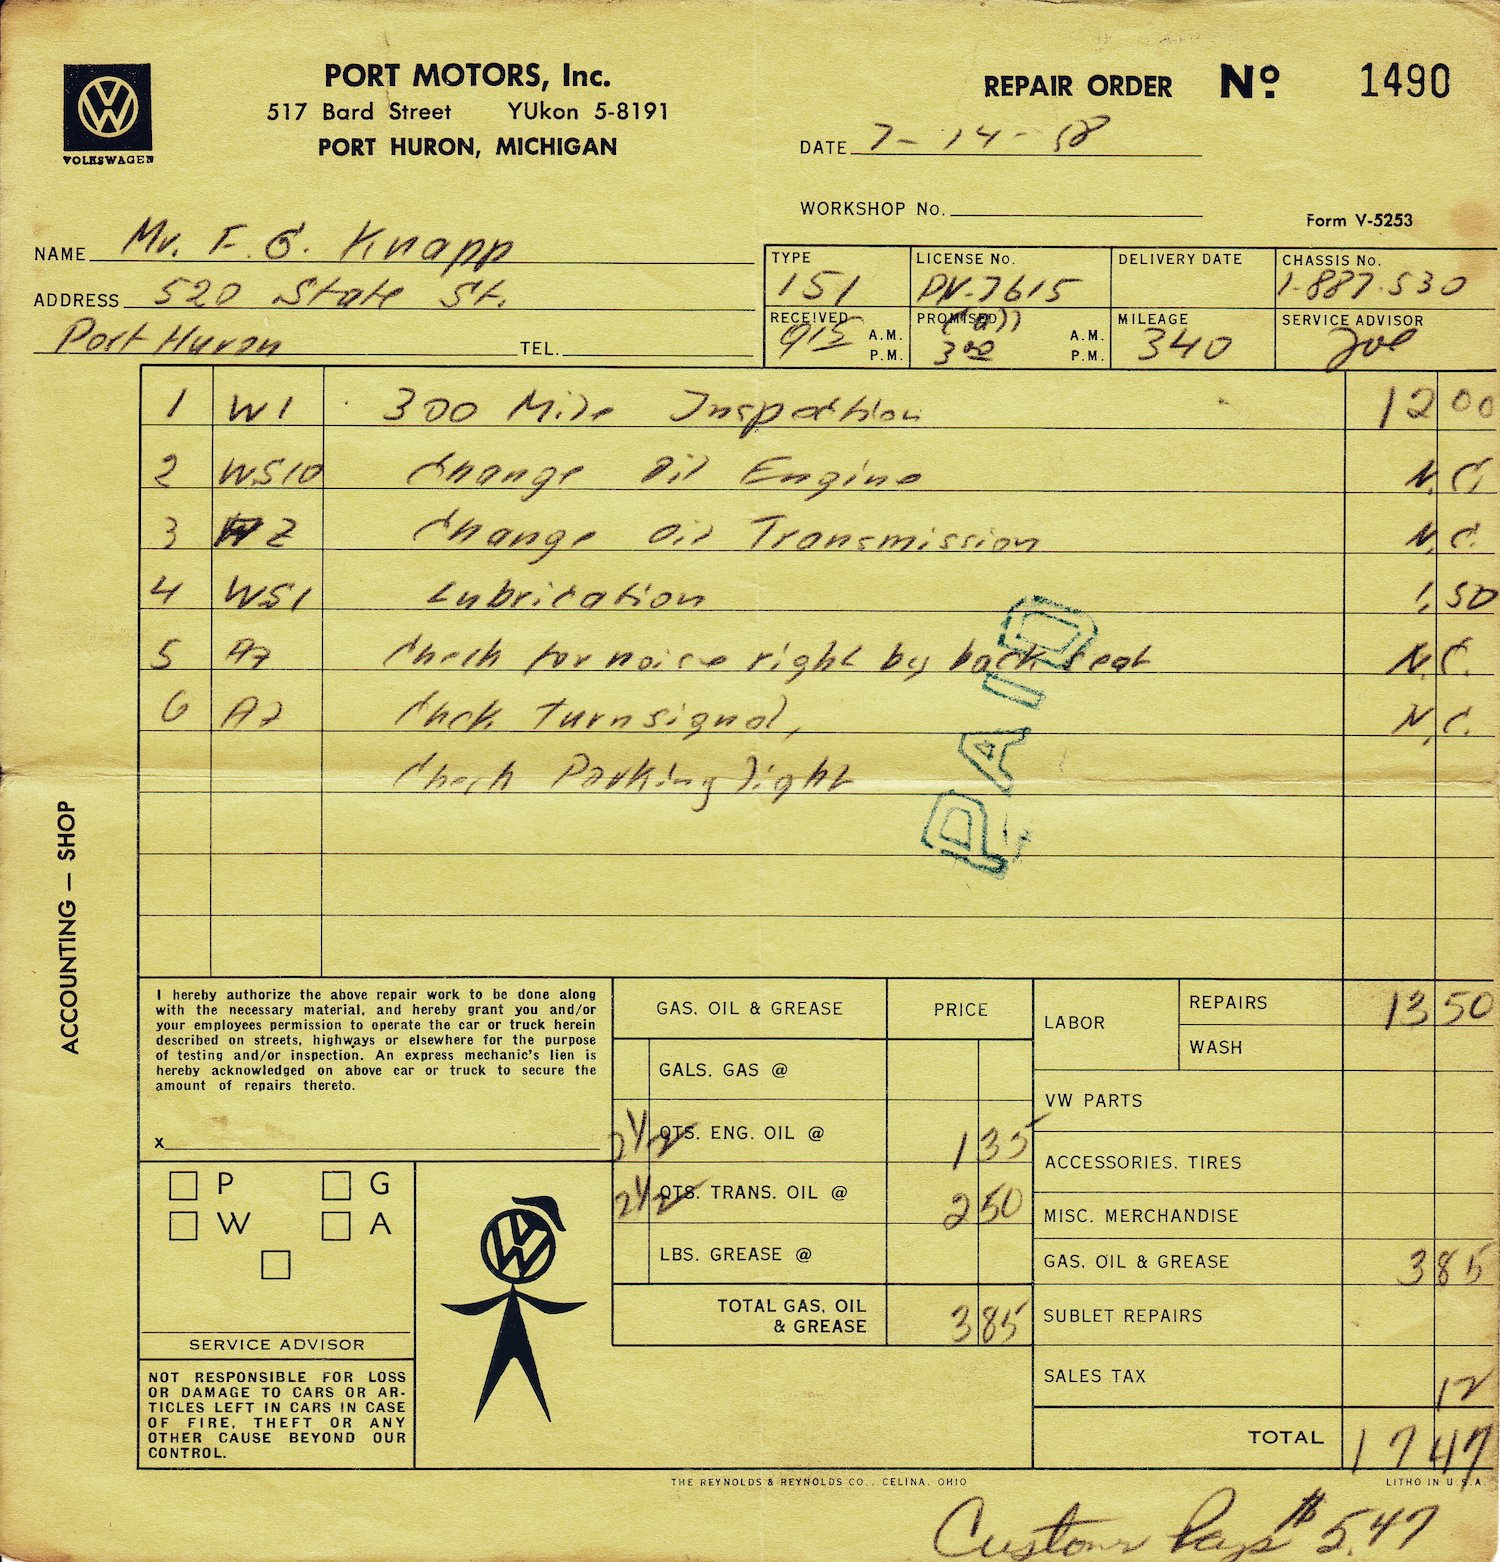 VOLKSWAGEN
PORT MOTORS, Inc.
517 Bard Street YUkon 5-8191
PORT HURON, MICHIGAN
REPAIR ORDER No. 1490
DATE 7-14-58
WORKSHOP No.
Form V-5253
NAME Mr. F. G. Knapp
ADDRESS 520 State St.
Port Huron TEL.
TYPE LICENSE No. DELIVERY DATE CHASSIS No.
151 DV-7615 1-887.530
RECEIVED PROMISED MILEAGE SERVICE ADVISOR
915 A.M. P.M. 300 A.M. P.M. 340 Joe
1 W1 300 Mile Inspection 12 00
2 WS10 Change Oil Engine N.C.
3 W2 Change Oil Transmission N.C.
4 WS1 Lubrication 1.50
5 A7 Check for noise right by back seat N.C.
6 A7 Check Turnsignal, N.C.
Check Parking light
PAID
ACCOUNTING — SHOP
I hereby authorize the above repair work to be done along
with the necessary material, and hereby grant you and/or
your employees permission to operate the car or truck herein
described on streets, highways or elsewhere for the purpose
of testing and/or inspection. An express mechanic's lien is
hereby acknowledged on above car or truck to secure the
amount of repairs thereto.
X
P G
W A
SERVICE ADVISOR
NOT RESPONSIBLE FOR LOSS
OR DAMAGE TO CARS OR AR-
TICLES LEFT IN CARS IN CASE
OF FIRE, THEFT OR ANY
OTHER CAUSE BEYOND OUR
CONTROL.
GAS, OIL & GREASE PRICE
GALS. GAS @
2 1/2 QTS. ENG. OIL @ 1 35
2 1/2 QTS. TRANS. OIL @ 2 50
LBS. GREASE @
TOTAL GAS, OIL
& GREASE 3 85
LABOR REPAIRS 13 50
WASH
VW PARTS
ACCESSORIES, TIRES
MISC. MERCHANDISE
GAS, OIL & GREASE 3 85
SUBLET REPAIRS
SALES TAX 12
TOTAL 17 47
THE REYNOLDS & REYNOLDS CO., CELINA, OHIO
LITHO IN U.S.A.
Customer Pays $5.47